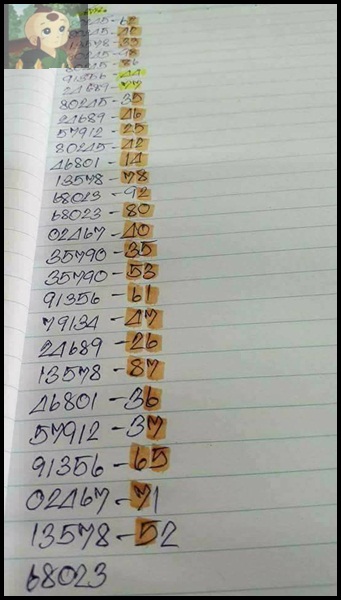 91356-44
24689-77
80245-35
24689-46
57912-25
80245-42
46801-14
13578-78
68023-92
68023-80
02467-40
35790-35
35790-53
91356-61
79134-47
24689-26
13578-87
46801-36
57912-37
91356-65
02467-71
13578-52
68023